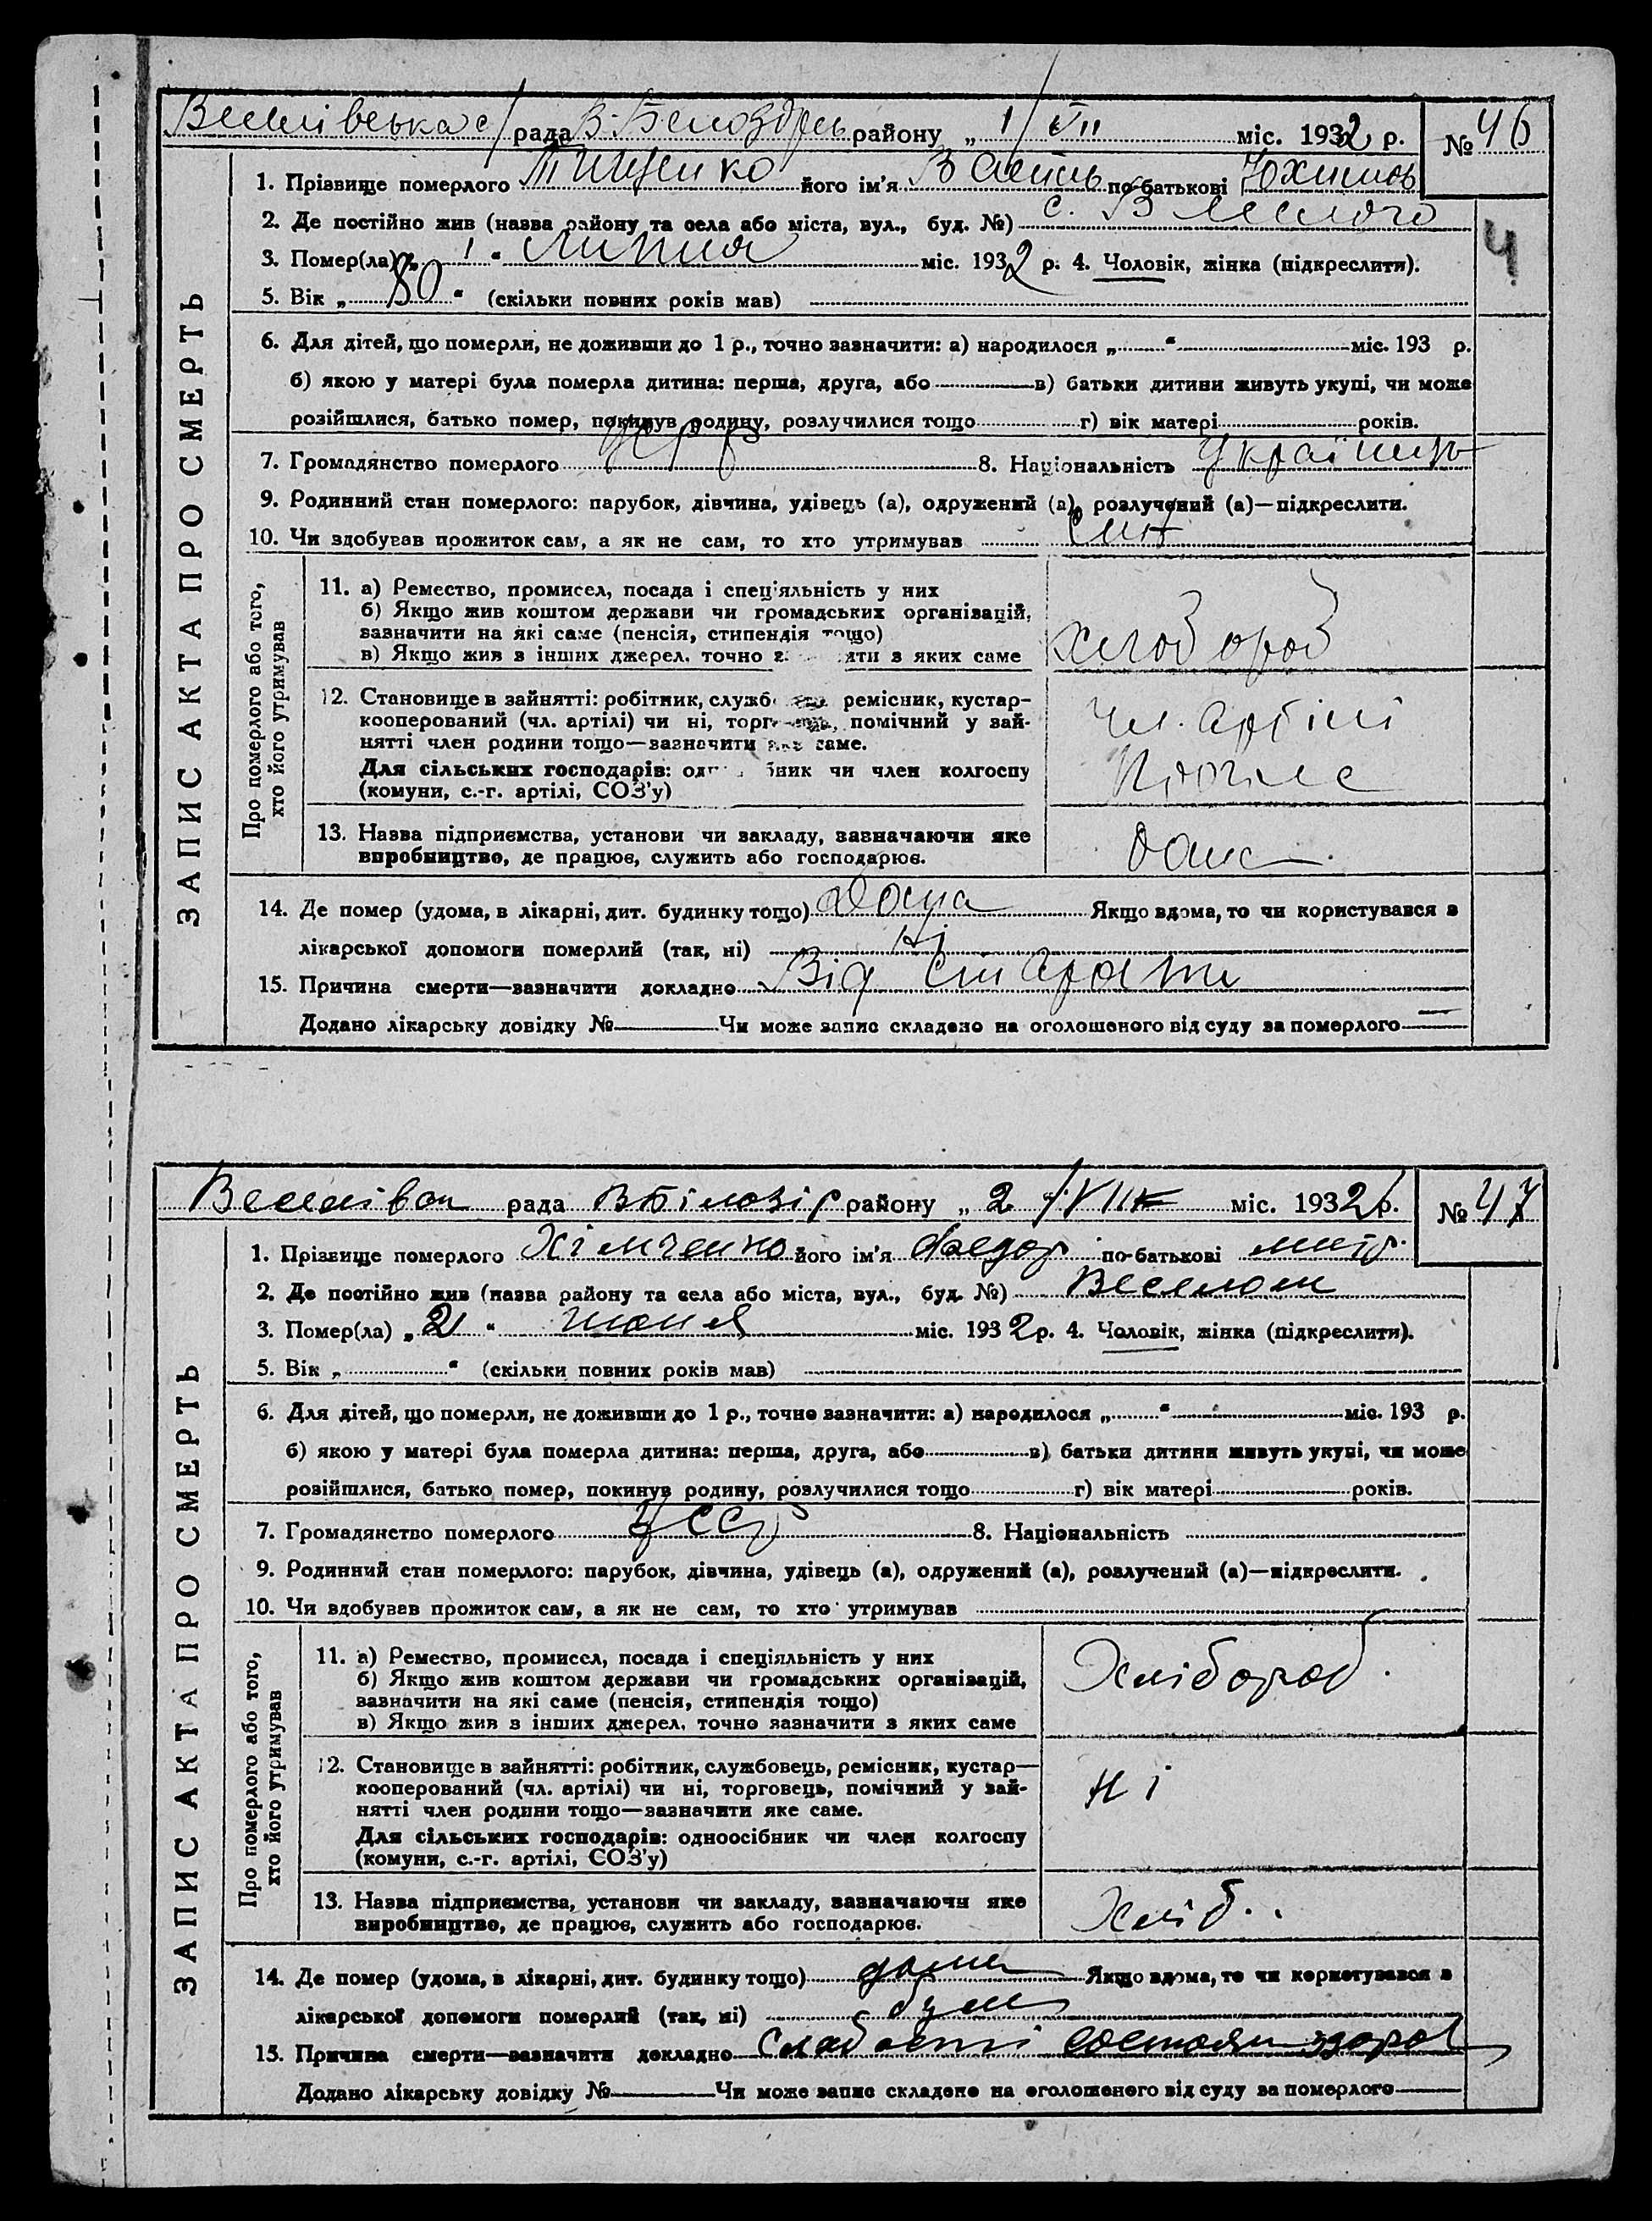 рада В. району „ 1/VII міс. 1932 р. № 46
1. Прізвище померлого Тищенко його ім'я по-батькові Юхимов
2. Де постійно жив (назва району та села або міста, вул., буд. №) с. Веселого
3. Помер(ла) „ 1 “ липня міс. 1932 р. 4. Чоловік, жінка (підкреслити).
4
5. Вік „ 80 “ (скільки повних років мав)
6. Для дітей, що померли, не доживши до 1 р., точно зазначити: а) народилося „ “ міс. 193 р.
б) якою у матері була померла дитина: перша, друга, або в) батьки дитини живуть укупі, чи може
розійшлися, батько помер, покинув родину, розлучилися тощо г) вік матері років.
7. Громадянство померлого 8. Національність Українець
9. Родинний стан померлого: парубок, дівчина, удівець (а), одружений (а), розлучений (а)—підкреслити.
10. Чи здобував прожиток сам, а як не сам, то хто утримував Син
ЗАПИС АКТА ПРО СМЕРТЬ
Про померлого або того, хто його утримував
11. а) Ремество, промисел, посада і спеціяльність у них
б) Якщо жив коштом держави чи громадських організацій,
зазначити на які саме (пенсія, стипендія тощо)
в) Якщо жив з інших джерел, точно з яких саме
12. Становище в зайнятті: робітник, ремісник, кустар-
кооперований (чл. артілі) чи ні, помічний у зай-
нятті член родини тощо—зазначити саме.
чл. артілі
Для сільських господарів: чи член колгоспу
(комуни, с.-г. артілі, СОЗ'у)
13. Назва підприємства, установи чи закладу, зазначаючи яке
виробництво, де працює, служить або господарює.
14. Де помер (удома, в лікарні, дит. будинку тощо) Дома Якщо вдома, то чи користувався з
лікарської допомоги померлий (так, ні) Ні
15. Причина смерти—зазначити докладно Від старости
Додано лікарську довідку № Чи може запис складено на оголошеного від суду за померлого —
рада В Білозір району „ 2 міс. 1932 р. № 47
1. Прізвище померлого Хімченко його ім'я Федор по-батькові митр.
2. Де постійно жив (назва району та села або міста, вул., буд. №) Веселом
3. Помер(ла) „ 2 “ міс. 1932 р. 4. Чоловік, жінка (підкреслити).
5. Вік „ “ (скільки повних років мав)
6. Для дітей, що померли, не доживши до 1 р., точно зазначити: а) народилося „ “ міс. 193 р.
б) якою у матері була померла дитина: перша, друга, або в) батьки дитини живуть укупі, чи може
розійшлися, батько помер, покинув родину, розлучилися тощо г) вік матері років.
7. Громадянство померлого УССР 8. Національність
9. Родинний стан померлого: парубок, дівчина, удівець (а), одружений (а), розлучений (а)—підкреслити.
10. Чи здобував прожиток сам, а як не сам, то хто утримував
ЗАПИС АКТА ПРО СМЕРТЬ
Про померлого або того, хто його утримував
11. а) Ремество, промисел, посада і спеціяльність у них
б) Якщо жив коштом держави чи громадських організацій,
зазначити на які саме (пенсія, стипендія тощо)
в) Якщо жив з інших джерел, точно зазначити з яких саме
Хлібороб
12. Становище в зайнятті: робітник, службовець, ремісник, кустар—
кооперований (чл. артілі) чи ні, торговець, помічний у зай-
нятті член родини тощо—зазначити яке саме.
ні
Для сільських господарів: одноосібник чи член колгоспу
(комуни, с.-г. артілі, СОЗ'у)
13. Назва підприємства, установи чи закладу, зазначаючи яке
виробництво, де працює, служить або господарює.
Хліб.
14. Де помер (удома, в лікарні, дит. будинку тощо) дома Якщо вдома, то чи користувався з
лікарської допомоги померлий (так, ні)
15. Причина смерти—зазначити докладно
Додано лікарську довідку № Чи може запис складено на оголошеного від суду за померлого